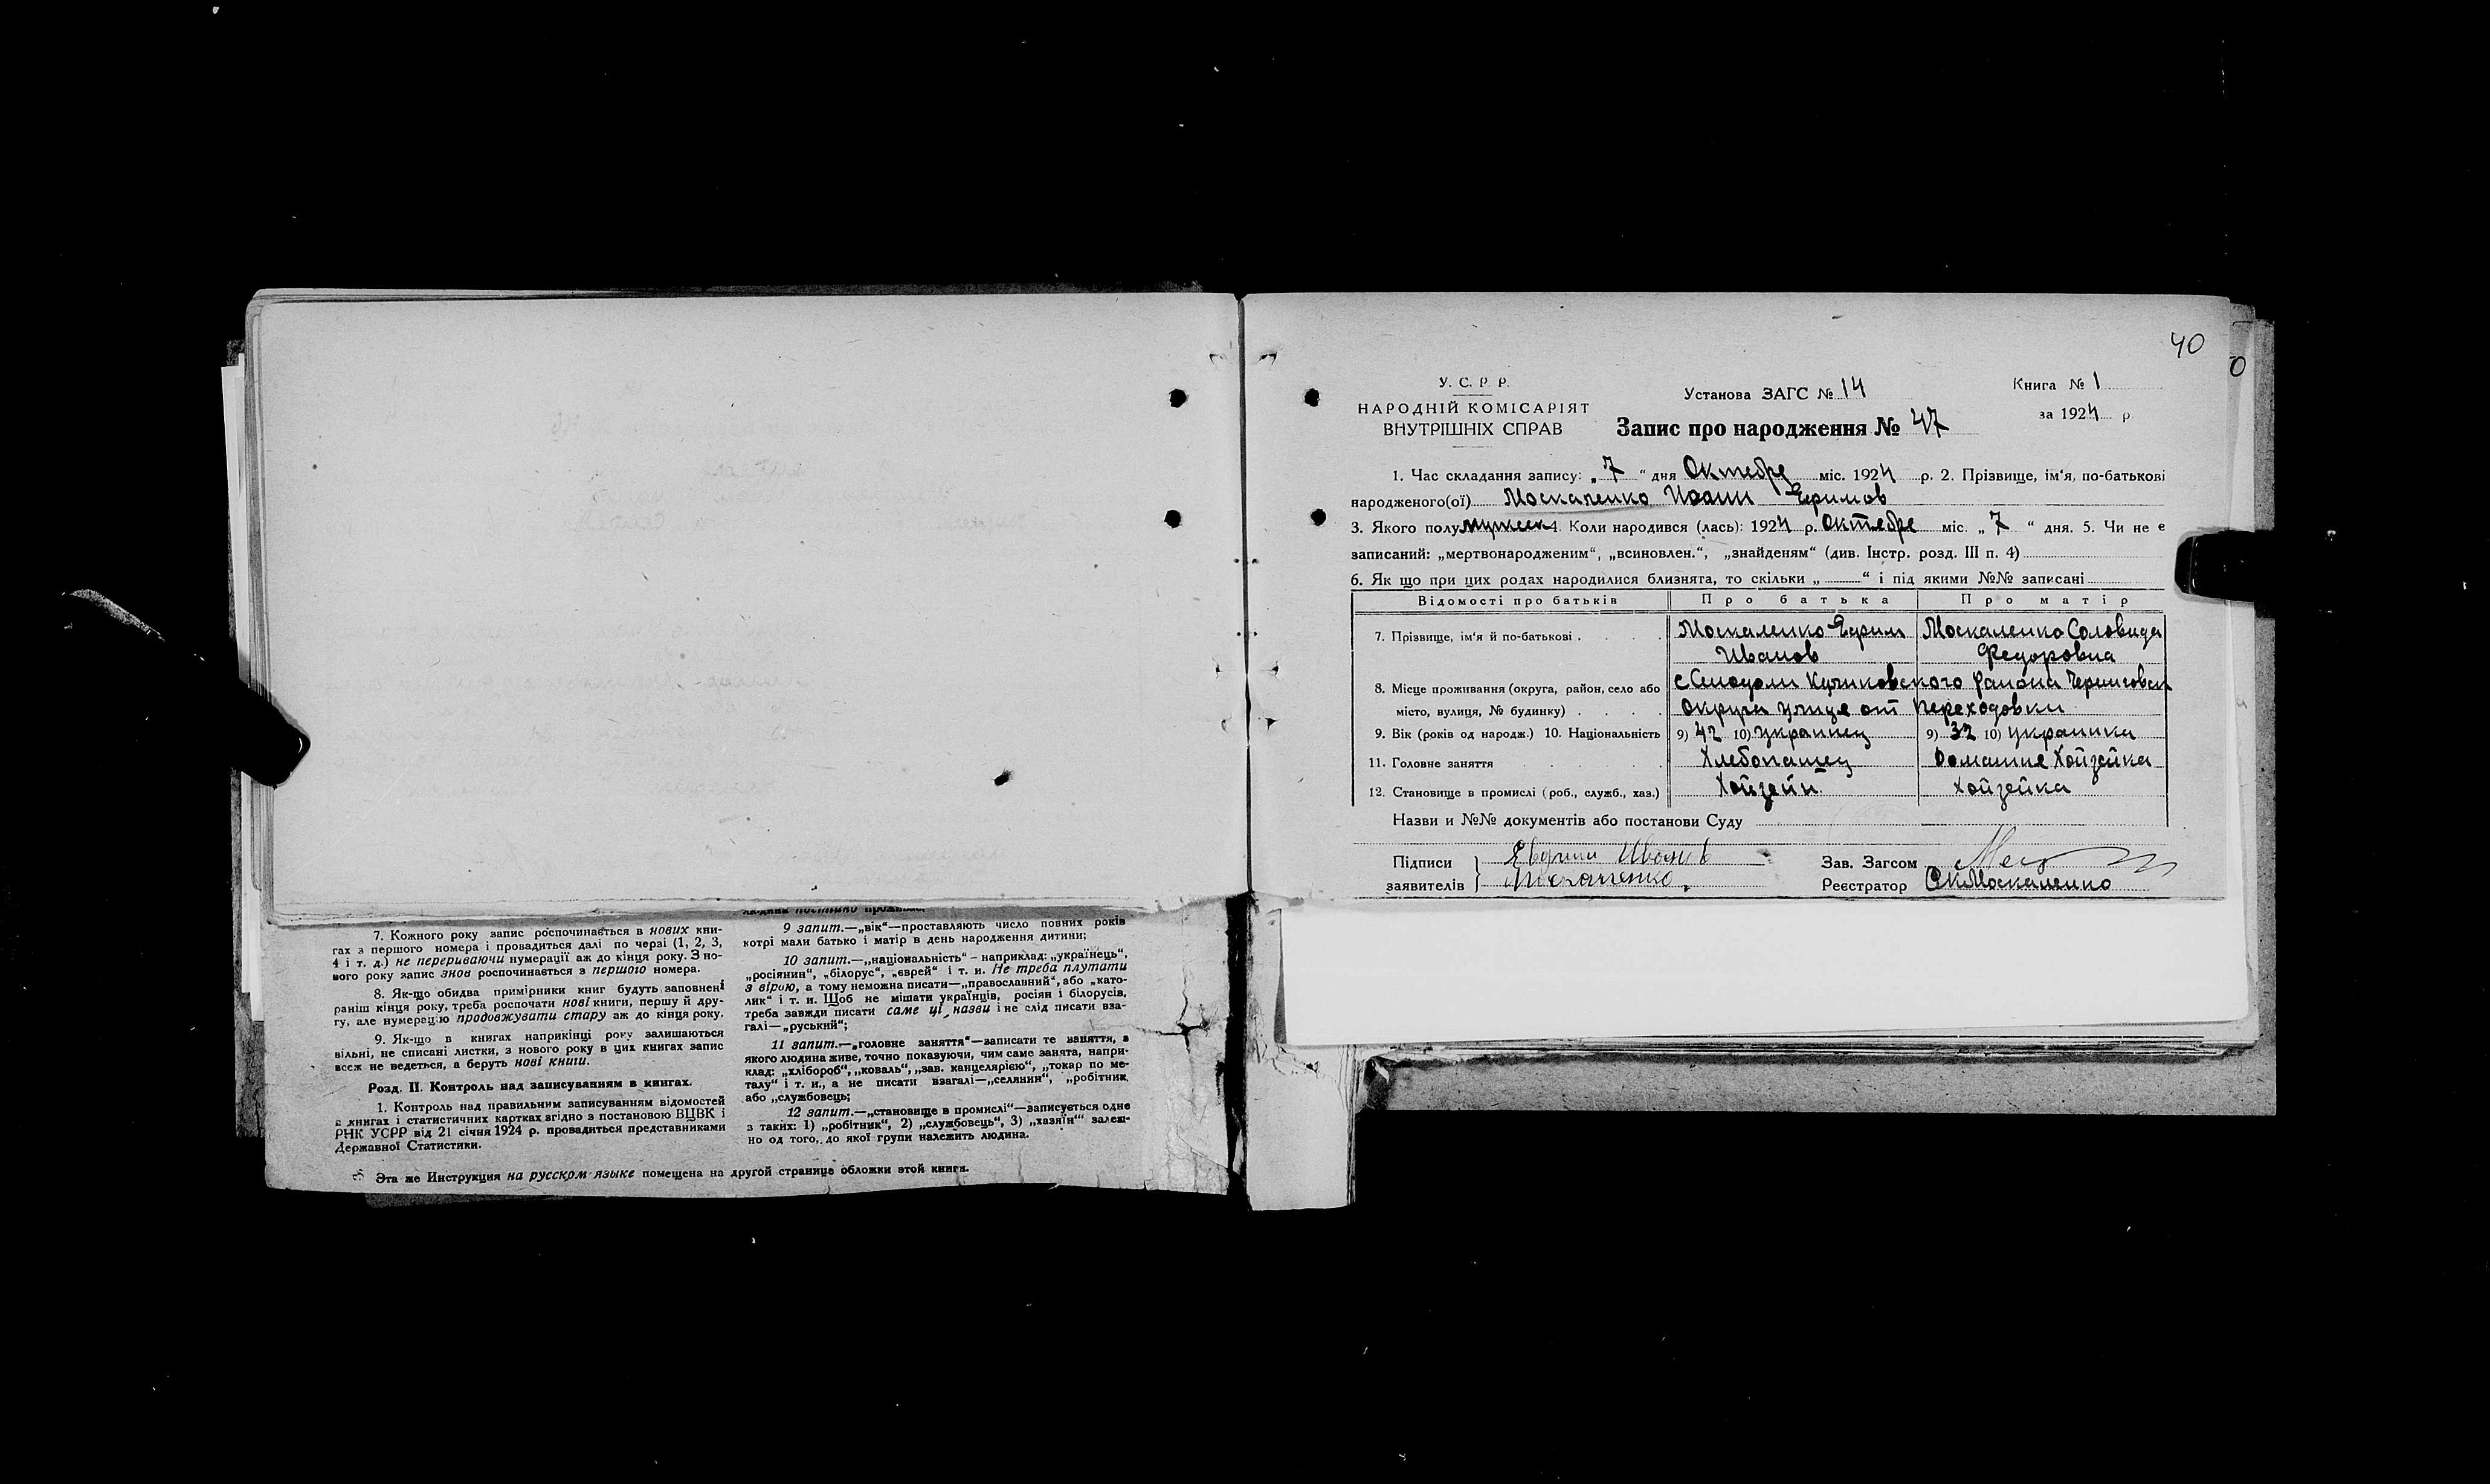 7. Кожного року запис роспочинається в нових кни-
гах з першого номера і провадиться далі по черзі (1, 2, 3,
4 і т. д.) не перериваючи нумерації аж до кінця року. З но-
вого року запис знов роспочинається з першого номера.
8. Як-що обидва примірники книг будуть заповнені
раніш кінця року, треба роспочати нові книги, першу й дру-
гу, але нумерацію продовжувати стару аж до кінця року.
9. Як-що в книгах наприкінці року залишаються
вільні, не списані листки, з нового року в цих книгах запис
всеж не ведеться, а беруть нові книги.
Розд. II. Контроль над записуванням в книгах.
1. Контроль над правильним записуванням відомостей
в книгах і статистичних картках згідно з постановою ВЦВК і
РНК УСРР від 21 січня 1924 р. провадиться представниками
Державної Статистики.
людина постійно проживає.
9 запит.—„вік“—проставляють число повних років
котрі мали батько і матір в день народження дитини;
10 запит.—„національність“ – наприклад: „українець“,
„росіянин“, „білорус“, „єврей“ і т. и. Не треба плутати
з вірою, а тому неможна писати—„православний“, або „като-
лик“ і т. и. Щоб не мішати українців, росіян і білорусів,
треба завжди писати саме ці назви і не слід писати вза-
галі—„руський“;
11 запит.—„головне заняття“—записати те заняття, з
якого людина живе, точно показуючи, чим саме занята, напри-
клад: „хлібороб“, „коваль“, „зав. канцелярією“, „токар по ме-
талу“ і т. и., а не писати взагалі—„селянин“, „робітник,
або „службовець;
12 запит.—„становище в промислі“—записується одне
з таких: 1) „робітник“, 2) „службовець“, 3) „хазяїн“ залеж-
но од того, до якої групи належить людина.
Эта же Инструкция на русском языке помещена на другой странице обложки этой книги.
40
У. С. Р. Р.
НАРОДНІЙ КОМІСАРІЯТ
ВНУТРІШНІХ СПРАВ
Установа ЗАГС № 14
Запис про народження № 47
Книга № 1
за 1924 р.
1. Час складання запису: „7“ дня Октебре міс. 1924 р. 2. Прізвище, ім'я, по-батькові
народженого(ої) Москаленко Иоанн Ефимов
3. Якого полу мужеск 4. Коли народився (лась): 1924 р. Октебре міс. „7“ дня. 5. Чи не є
записаний: „мертвонародженим“, „всиновлен.“, „знайденям“ (див. Інстр. розд. III п. 4)
6. Як що при цих родах народилися близнята, то скільки „ “ і під якими №№ записані
Відомості про батьків Про батька Про матір
7. Прізвище, ім'я й по-батькові Москаленко Ефим Москаленко Соловида
Иванов Федоровна
8. Місце проживання (округа, район, село або района
місто, вулиця, № будинку) Округа улице от Переходовки
9. Вік (років од народж.) 10. Національність 9) 42 10) украинец 9) 32 10) украинка
11. Головне заняття Хлебопашец Домашне Хойзейка
12. Становище в промислі (роб., служб., хаз.) Хойзейн Хойзейка
Назви и №№ документів або постанови Суду
Підписи Иванов Зав. Загсом
заявителів Москаленко Реєстратор Москаленко